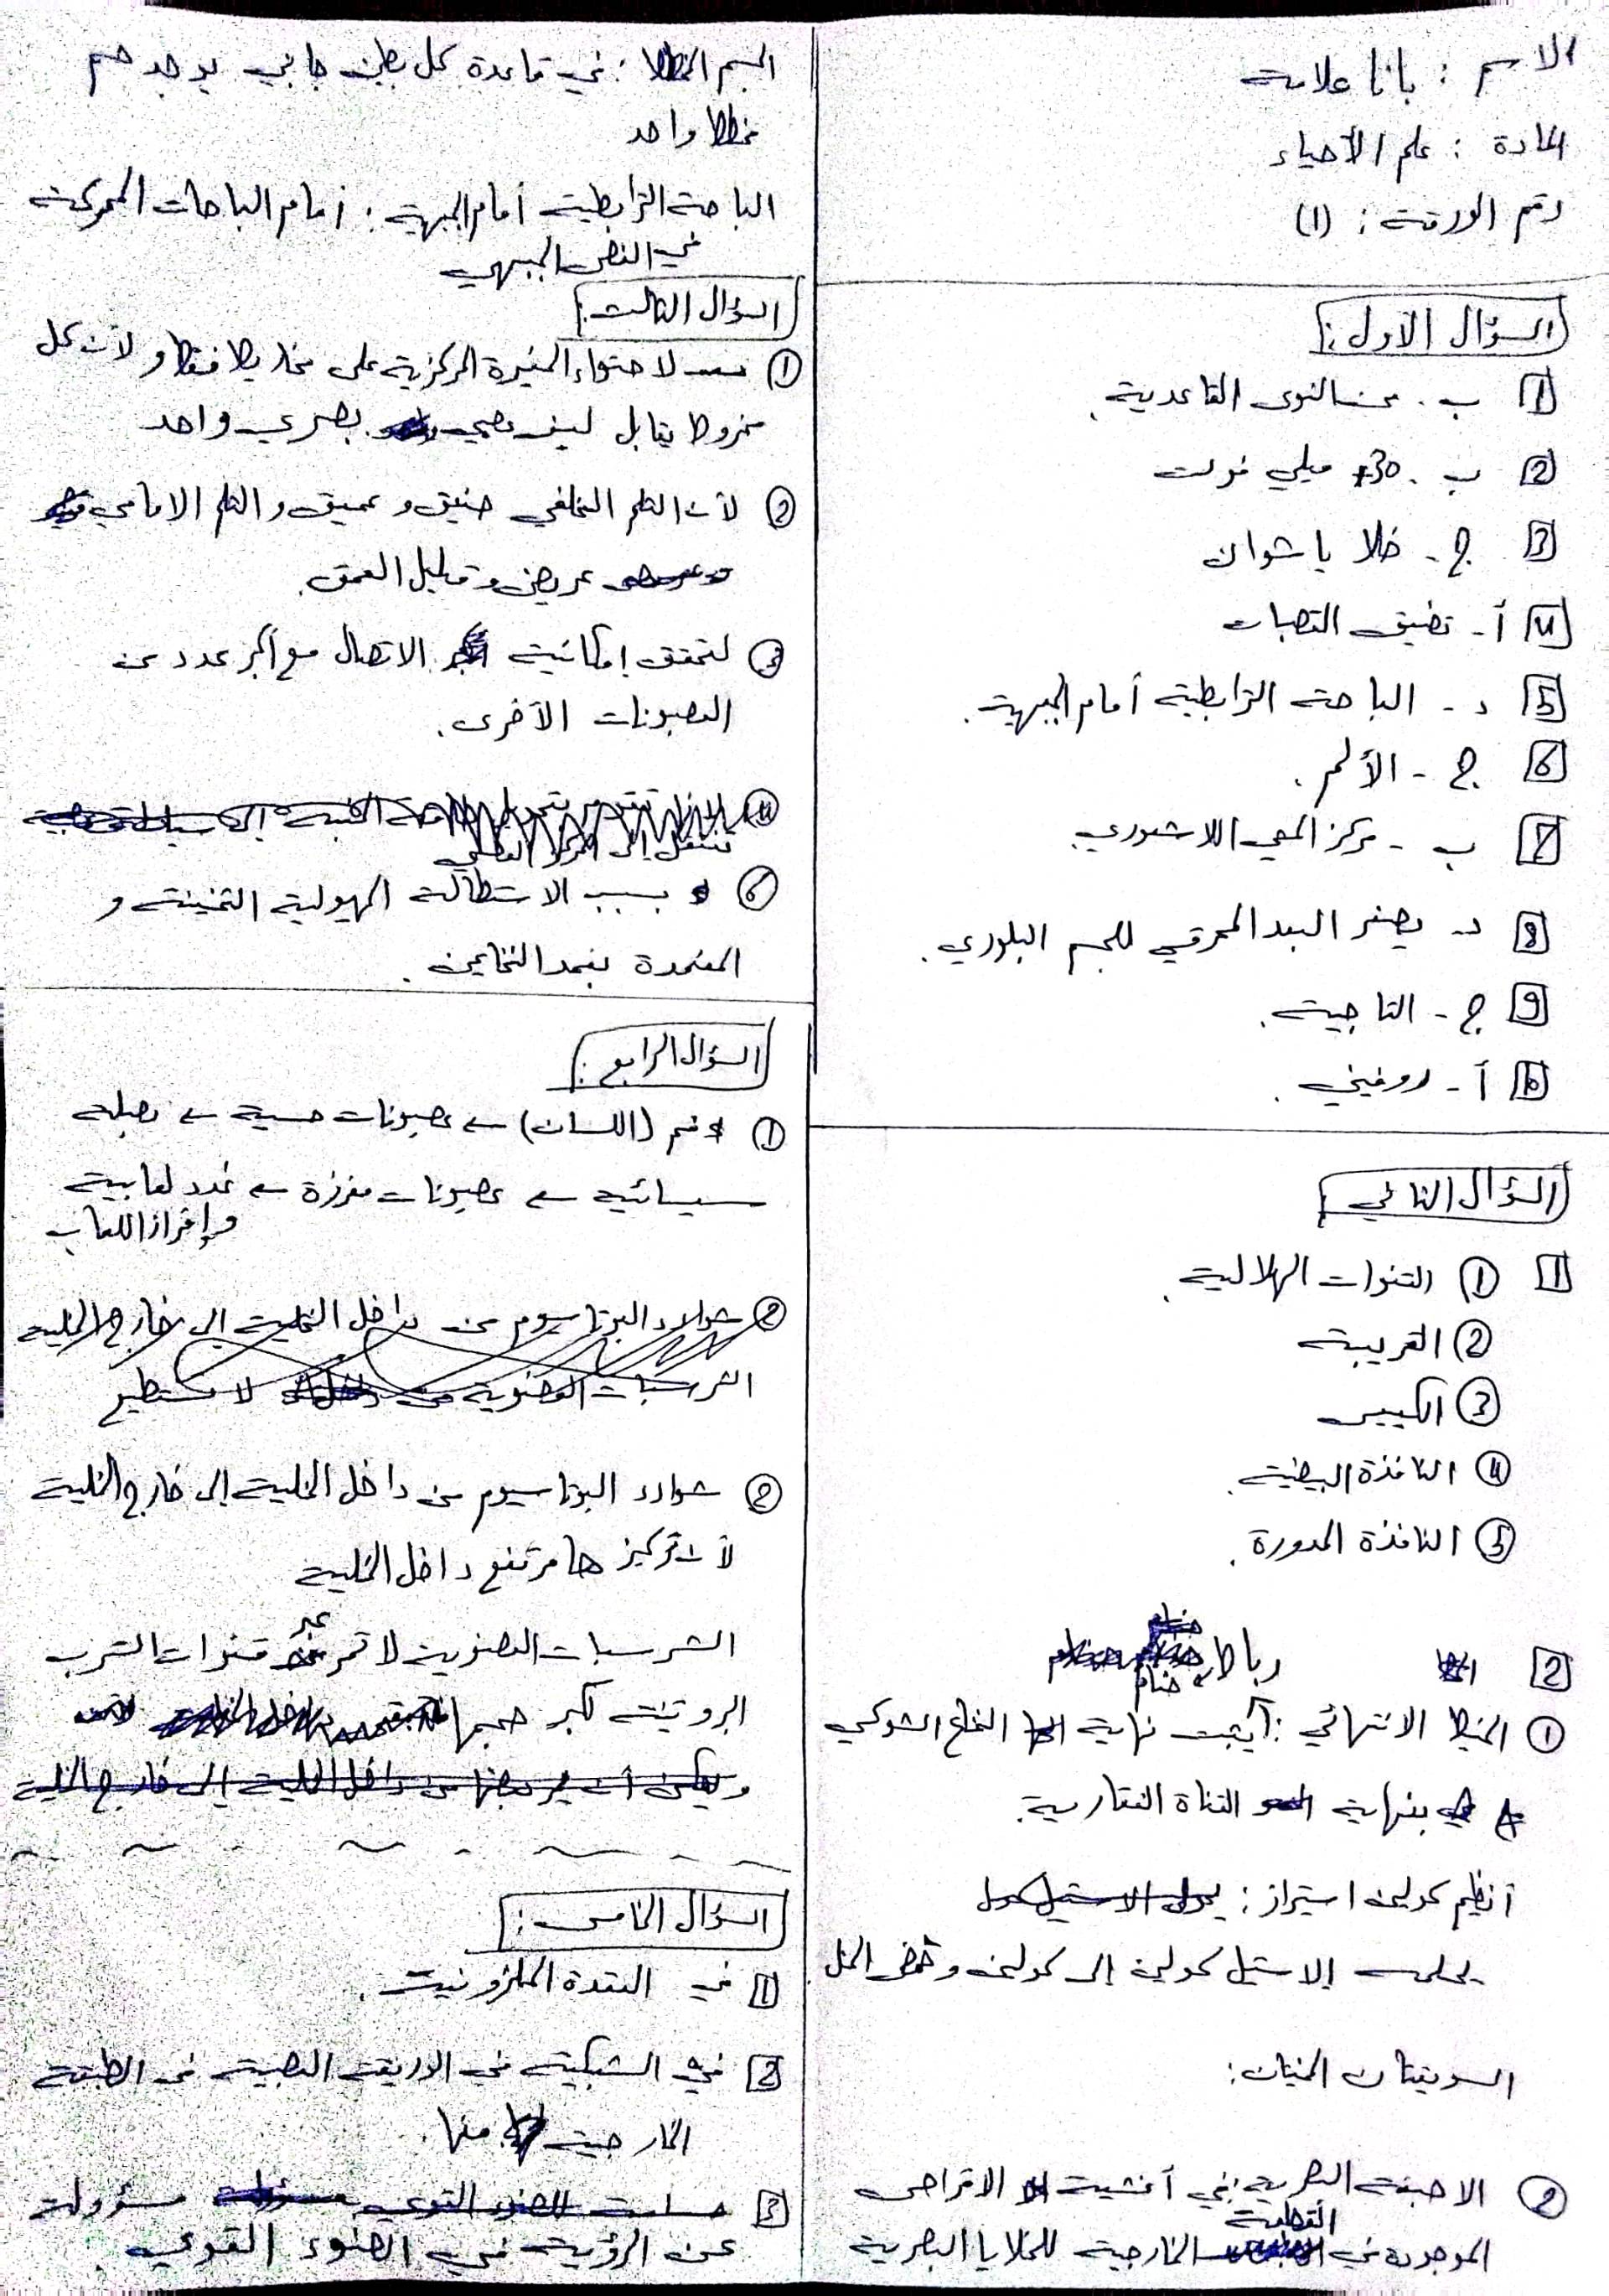 الاسم : بانا علامة
المادة : علم الأحياء
رقم الورقة : (1)
السؤال الأول :
1 ب. من النوى القاعدية.
2 ب. +30 ميلي فولت
3 ج - خلايا شوان
4 أ - تضيق القصبات
5 د - الباحة الترابطية أمام الجبهية.
6 ج - الألم.
7 ب - مركز المعي اللاشعوري.
8 د - يصغر البعد المحرقي للجسم البلوري.
9 ج - التاجية.
10 أ - روغيني.
السؤال الثاني :
1 ① القنوات الهلالية.
② القريبة
③ الكييس
④ النافذة البيضية.
⑤ النافذة المدورة.
2 رباط ضام
① الخيط الانتهائي : يثبت نهاية النخاع الشوكي
بنهاية القناة الفقارية.
أنظيم كولين استيراز :
يحلمه الاستيل كولين إلى كولين وحمض الخل.
السويقتان المخيتان :
② الأصبغة البصرية : في أغشية الأقراص
الموجودة في القطعة الخارجية للخلايا البصرية
الجسم المخطط : في قاعدة كل بطين جانبي يوجد جسم
مخطط واحد
الباحة الترابطية أمام الجبهية : أمام الباحات المحركة
في الفص الجبهي
السؤال الثالث :
① لاحتواء الحفيرة المركزية على مخاريط فقط و لأن كل
مخروط يقابل ليف عصبي بصري واحد
② لأن الثلم الخلفي ضيق و عميق و الثلم الامامي
عريض و قليل العمق.
③ لتحقق إمكانية الاتصال مع أكبر عدد من
العصبونات الأخرى.
④
⑥ بسبب الاستطالة الهيولية الثخينة و
المغمدة بغمد النخاعين.
السؤال الرابع :
① فم (اللسان) ← عصبونات حسية ← بصلة
سيسائية ← عصبونات مفرزة ← غدد لعابية
و إفراز اللعاب
② شوارد البوتاسيوم من داخل الخلية إلى خارج الخلية
لأن تركيزها مرتفع داخل الخلية
الشرسبات العضوية لا تمر عبر قنوات التسرب
البروتينية لكبر حجمها
السؤال الخامس :
1 في العقدة الحلزونية.
2 في الشبكية في الوريقة العصبية في الطبقة
الخارجية منها.
3 مسؤولة
عن الرؤية في الضوء القوي.